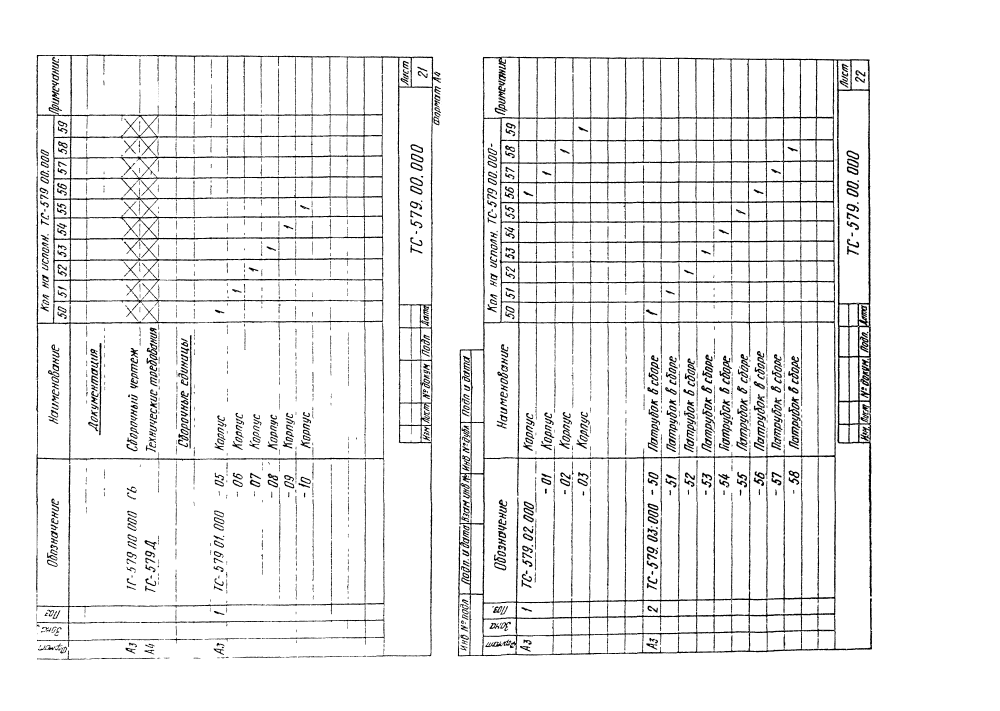 Формат Зона Поз Обозначение Наименование Кол на исполн. ТС-579 00.000 Примечание
50 51 52 53 54 55 56 57 58 59
Документация
А3 ТС-579 00 000 СБ Сборочный чертеж
А4 ТС-579 Д Технические требования
Сборочные единицы
А3 1 ТС-579 01.000 -05 Корпус 1
-06 Корпус 1
-07 Корпус 1
-08 Корпус 1
-09 Корпус 1
-10 Корпус 1
Изм Лист № докум Подп Дата
ТС-579.00.000
Лист
21
Формат А4
Инв № подл Подп. и дата Взам инв № Инв № дубл Подп и дата
Формат Зона Поз. Обозначение Наименование Кол на исполн. ТС-579 00.000- Примечание
50 51 52 53 54 55 56 57 58 59
А3 1 ТС-579.02.000 Корпус 1
-01 Корпус 1
-02 Корпус 1
-03 Корпус 1
А3 2 ТС-579.03.000 -50 Патрубок в сборе 1
-51 Патрубок в сборе 1
-52 Патрубок в сборе 1
-53 Патрубок в сборе 1
-54 Патрубок в сборе 1
-55 Патрубок в сборе 1
-56 Патрубок в сборе 1
-57 Патрубок в сборе 1
-58 Патрубок в сборе 1
Изм Лист № докум Подп. Дата
ТС-579.00.000
Лист
22